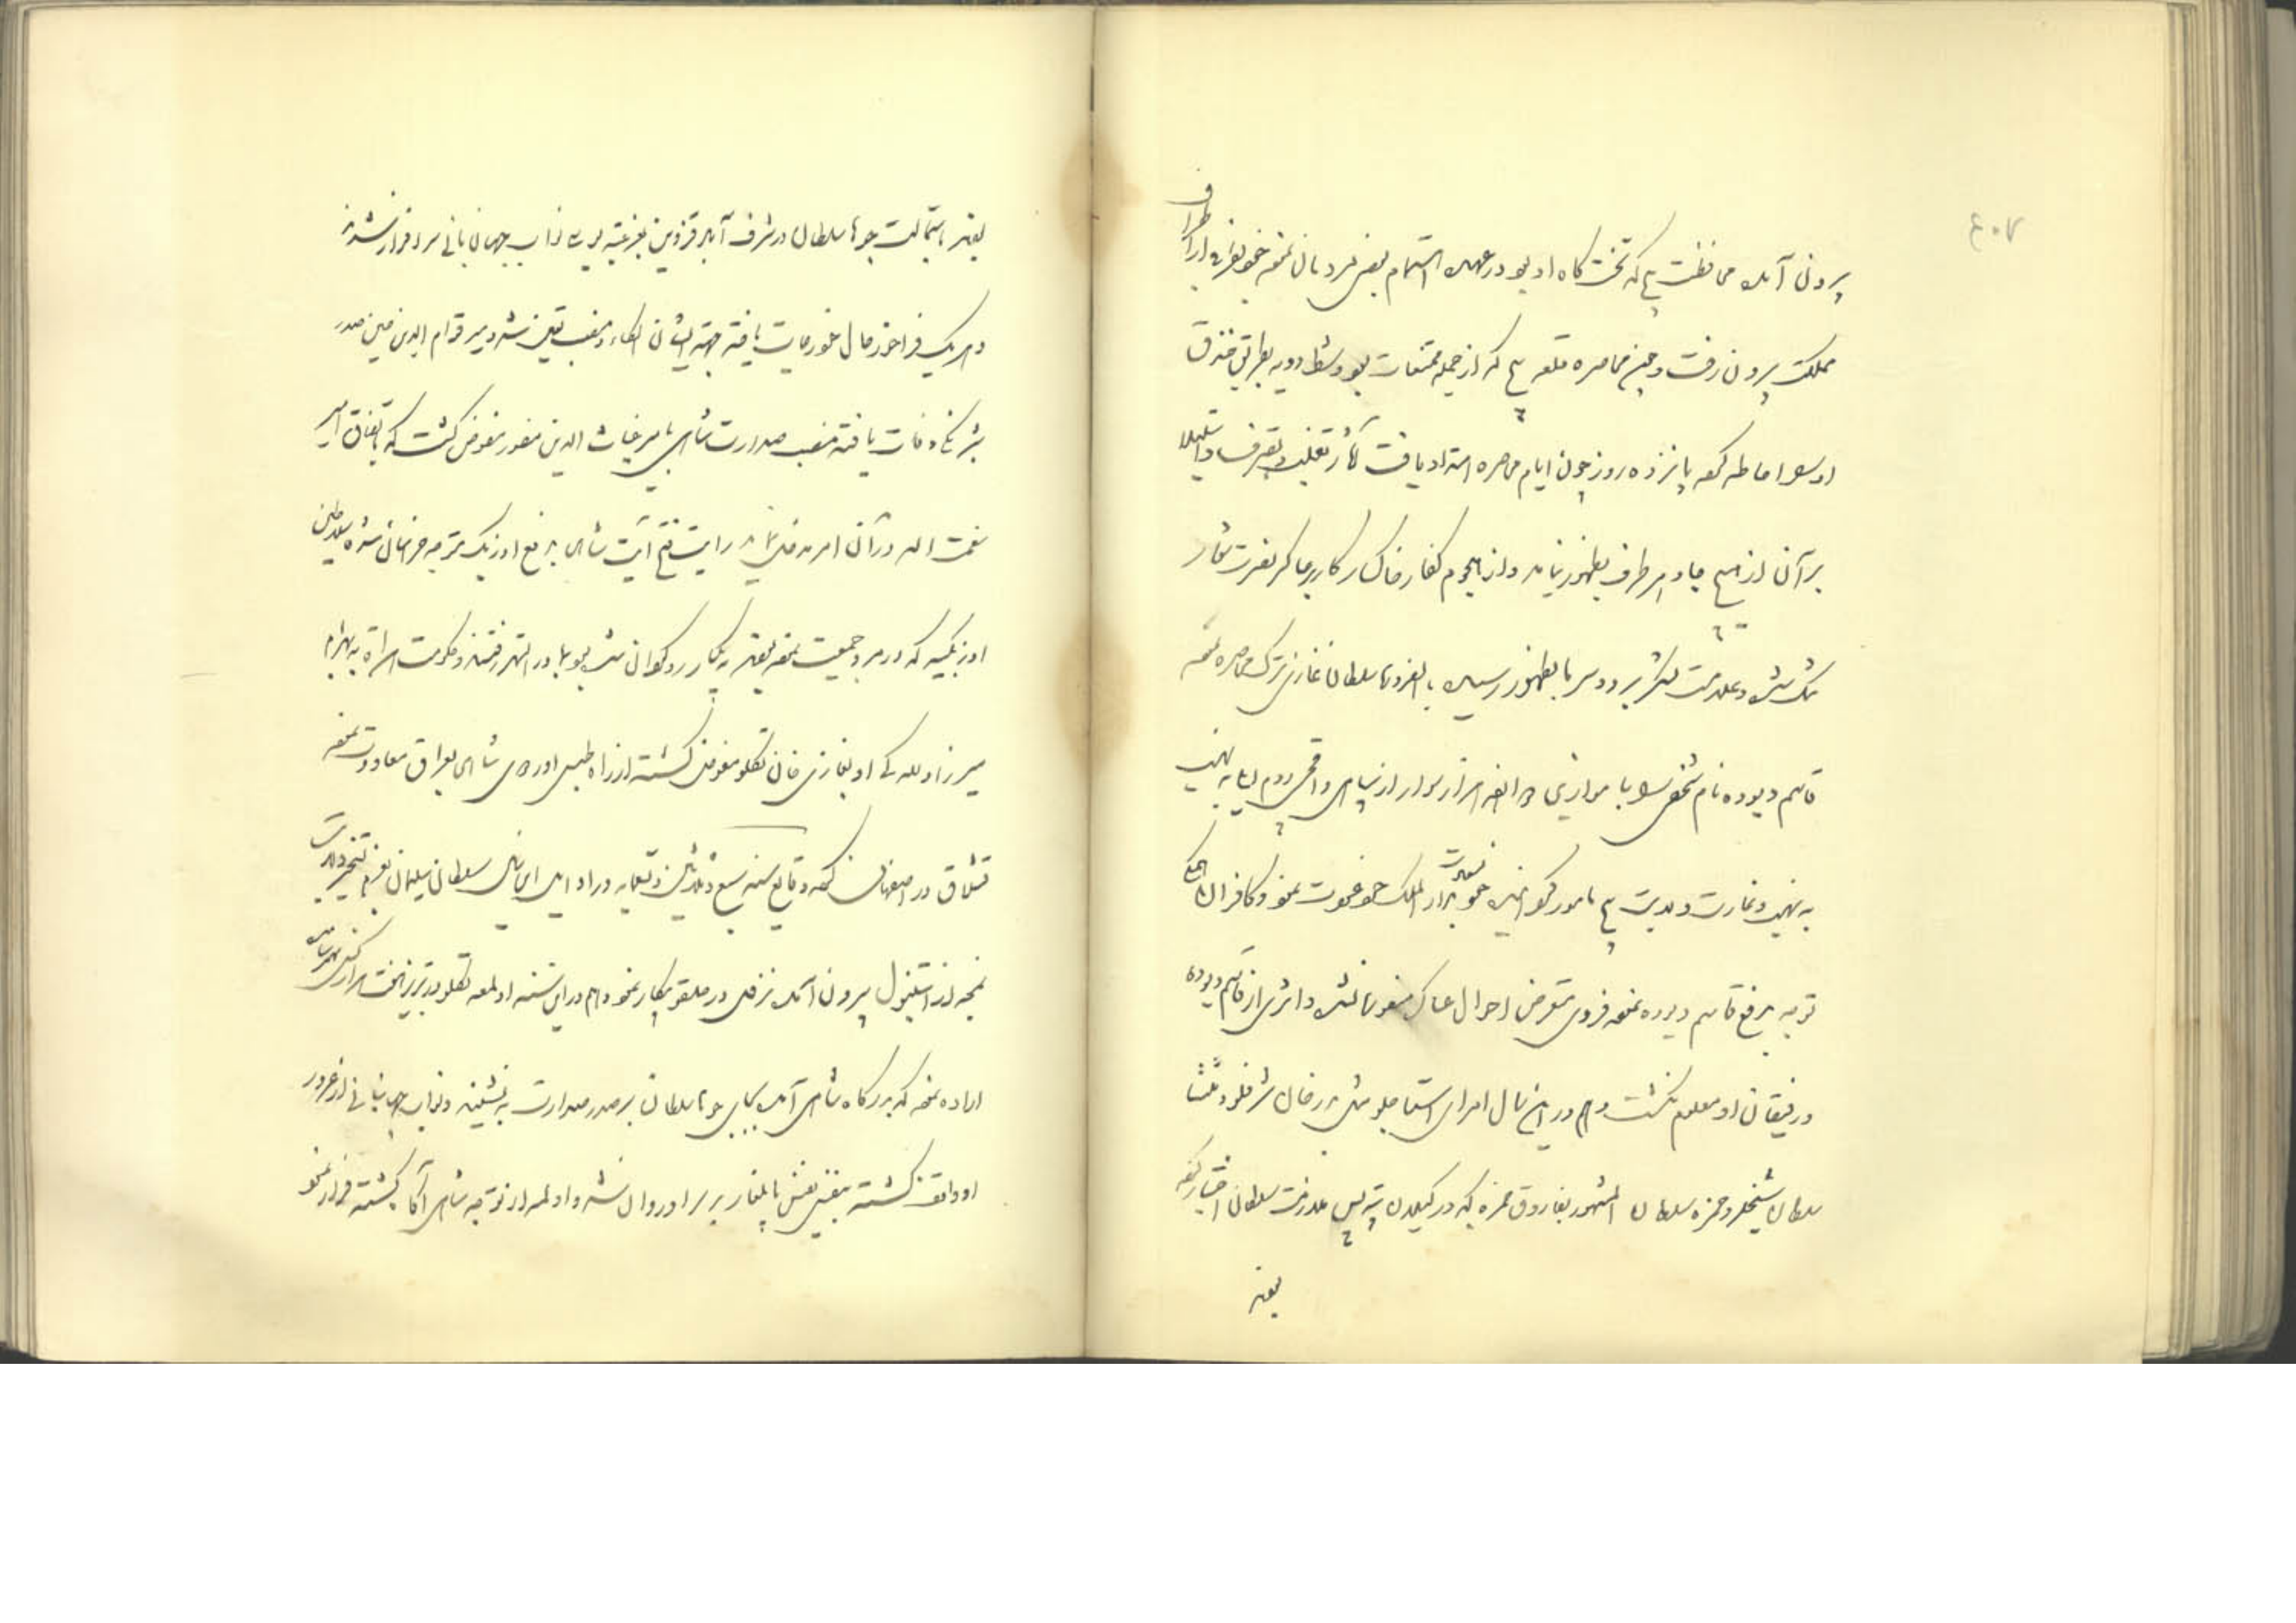 ۴۰۷
بیرون آمده محافظت بچ که تختگاه او بود در عهده اهتمام بعضی مردمان نموده خود بفرار اطراف
مملکت بیرون رفت و حین محاصره قلعه بچ که از جمله ممتنعات بود و شط دویه بطریق خندق
او را احاطه کرده پانزده روز چون ایام محاصره امتداد یافت آثار تغلب و تصرف و استیلا
بر آن از هیچ جا و هر طرف بظهور نیامد و از هجوم کفار خاکسار کار بر عساکر نصرت شعار
تنگ شد و علامت لشکر برد و سرما بظهور رسید بالضروره سلطان غازی ترک محاصره نموده
قاسم دیوده نام شخصی را با موازی ده الف هزار سوار از سپاهی و آقنجی روم ایلی به نهب
به نهب و غارت ولایت بچ مامور گردانید خود بدار الملک خود عودت نمود و کافران
توجه بدفع قاسم دیوده نموده فردی متعرض احوال عساکر منصوره نشد و اثری از قاسم دیوده
و رفیقان او معلوم نگشت و هم در این سال امرای استاجلو مثل بدر خان شرفلو و منتشا
سلطان شیخلر و حمزه سلطان المشهور بقاروق حمزه که در گیلان بیه پس ملازمت سلطان اختیار کرده
بودند
بودند باستمالت جوها سلطان در شرف آباد قزوین بعز عتبه بوسی نواب جهانبانی سرافراز شدند
و هر یک فراخور حال خود رعایت یافته جهة ایشان الکاء و منصب تعیین شد و میر قوام الدین حسین صدر
بشرنکاء وفات یافته منصب صدارت شاهی بامیر غیاث الدین منصور مفوض گشت که باتفاق امیر
نعمت الله در آن امر مدخل نماید رایت فتح آیت شاهی بدفع اوزبک متوجه خراسان شده سلاطین
اوزبکیه که در مرو جمعیت نموده بودند بیکبار روگردان شده بماوراءالنهر رفتند و حکومت هراة به بهرام
میرزا و لله گی او بغازی خان تکلو مفوض گشته از راه طبس اوردوی شاهی بعراق معاودت نموده
قشلاق در اصفهان کرده وقایع سنه تسع و ثلاثین و تسعمایه در اوایل این سال سلطان سلیمان بعزم تسخیر ولایت
نمچه از استنبول بیرون آمد و هم در این سنه اولمه تکلو در تبریز
اراده نموده که بدرگاه شاهی آمده بجای جوها سلطان بر صدر صدارت به نشیند و نواب جهانبانی از غرور
او واقف گشته بنفس نفیس بایلغار بر سر او روان شد و اولمه از توجه شاهی آگاه گشته فرار نمود